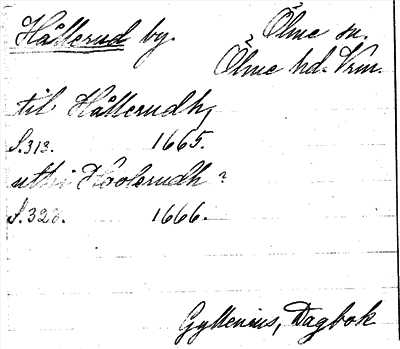 Hållerud by. Ölme sn.
Ölme hd. Vrm.
til Hållerudh,
S. 313. 1665.
uthi Hoolerudh ?
S. 328. 1666.
Gyllenius, Dagbok